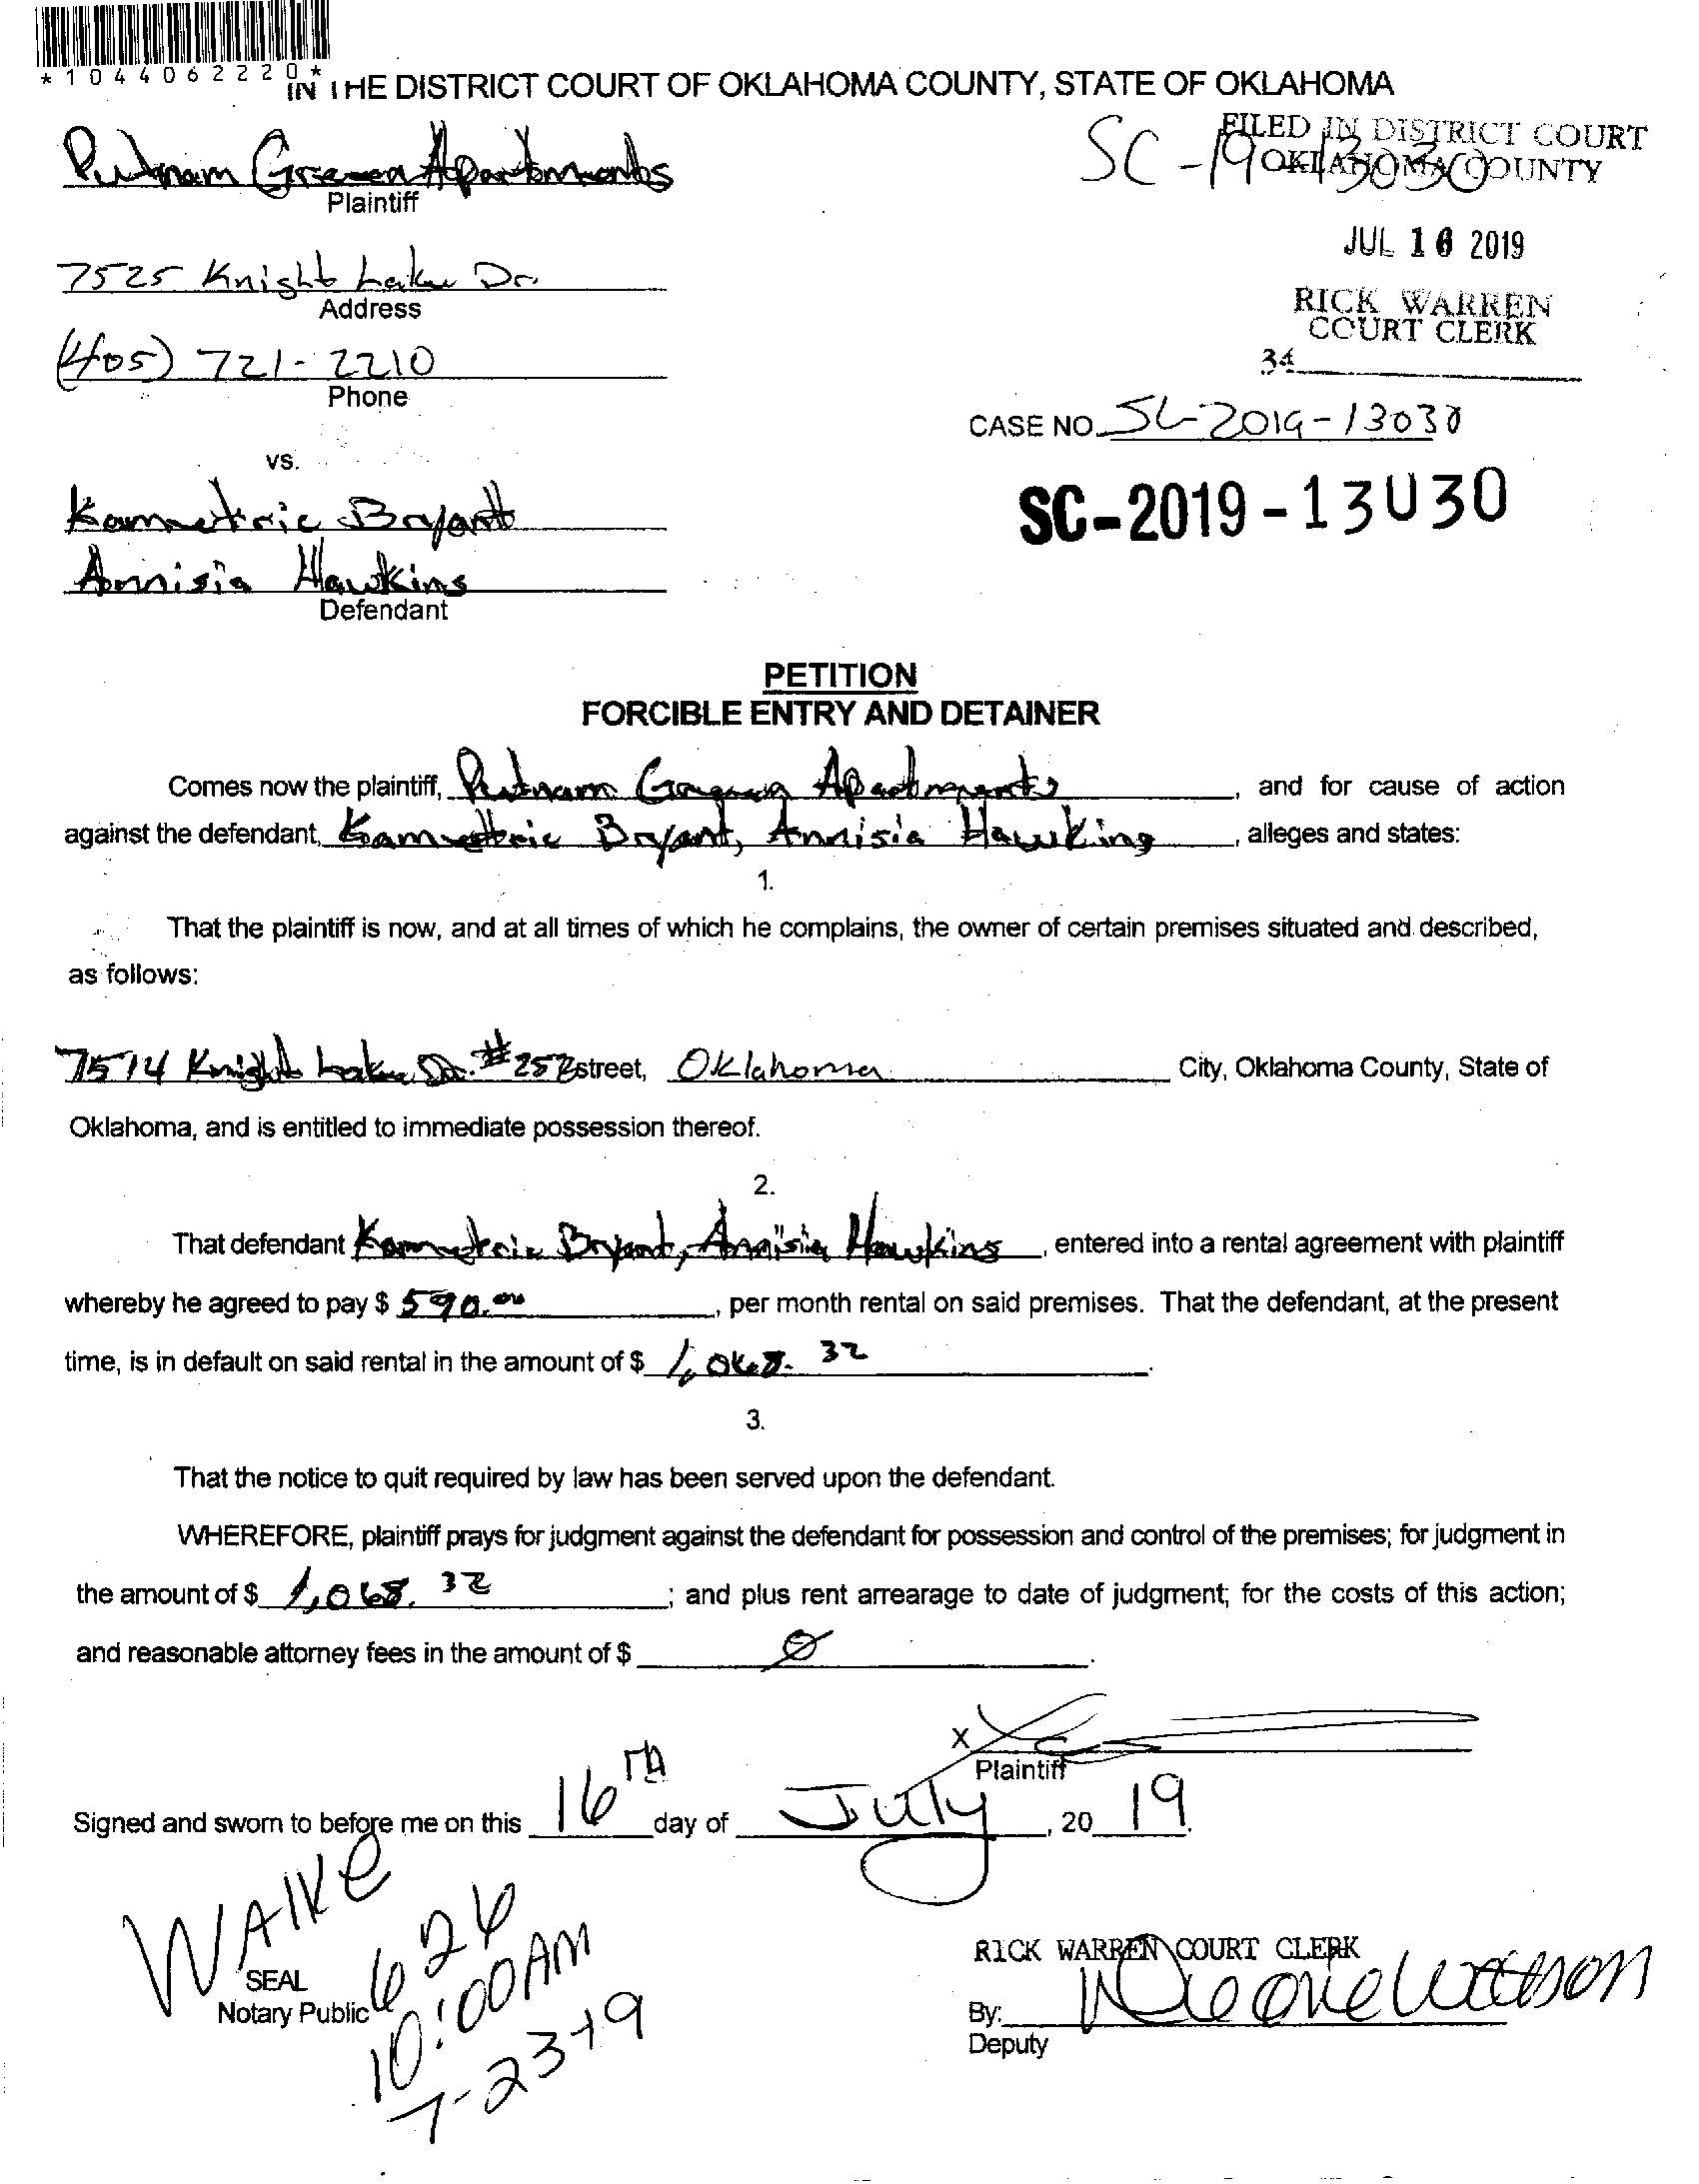 *1044062220*
IN THE DISTRICT COURT OF OKLAHOMA COUNTY, STATE OF OKLAHOMA
Putnam Green Apartments
Plaintiff
SC-19-13030
FILED IN DISTRICT COURT
OKLAHOMA COUNTY
JUL 16 2019
RICK WARREN
COURT CLERK
34
7525 Knight Lake Dr.
Address
(405) 721-2210
Phone
CASE NO. SC-2019-13030
vs.
SC-2019-13030
Kammetric Bryant
Annisia Hawkins
Defendant
PETITION
FORCIBLE ENTRY AND DETAINER
Comes now the plaintiff, Putnam Green Apartments, and for cause of action
against the defendant, Kammetric Bryant, Annisia Hawkins, alleges and states:
1.
That the plaintiff is now, and at all times of which he complains, the owner of certain premises situated and described,
as follows:
7514 Knight Lake Dr. #252 street, Oklahoma City, Oklahoma County, State of
Oklahoma, and is entitled to immediate possession thereof.
2.
That defendant Kammetric Bryant, Annisia Hawkins, entered into a rental agreement with plaintiff
whereby he agreed to pay $ 590.00, per month rental on said premises. That the defendant, at the present
time, is in default on said rental in the amount of $ 1,068.32.
3.
That the notice to quit required by law has been served upon the defendant.
WHEREFORE, plaintiff prays for judgment against the defendant for possession and control of the premises; for judgment in
the amount of $ 1,068.32; and plus rent arrearage to date of judgment; for the costs of this action;
and reasonable attorney fees in the amount of $ Ø.
X
Plaintiff
Signed and sworn to before me on this 16TH day of July, 2019.
WALKE
626
10:00AM
7-23-19
SEAL
Notary Public
RICK WARREN COURT CLERK
By:
Deputy